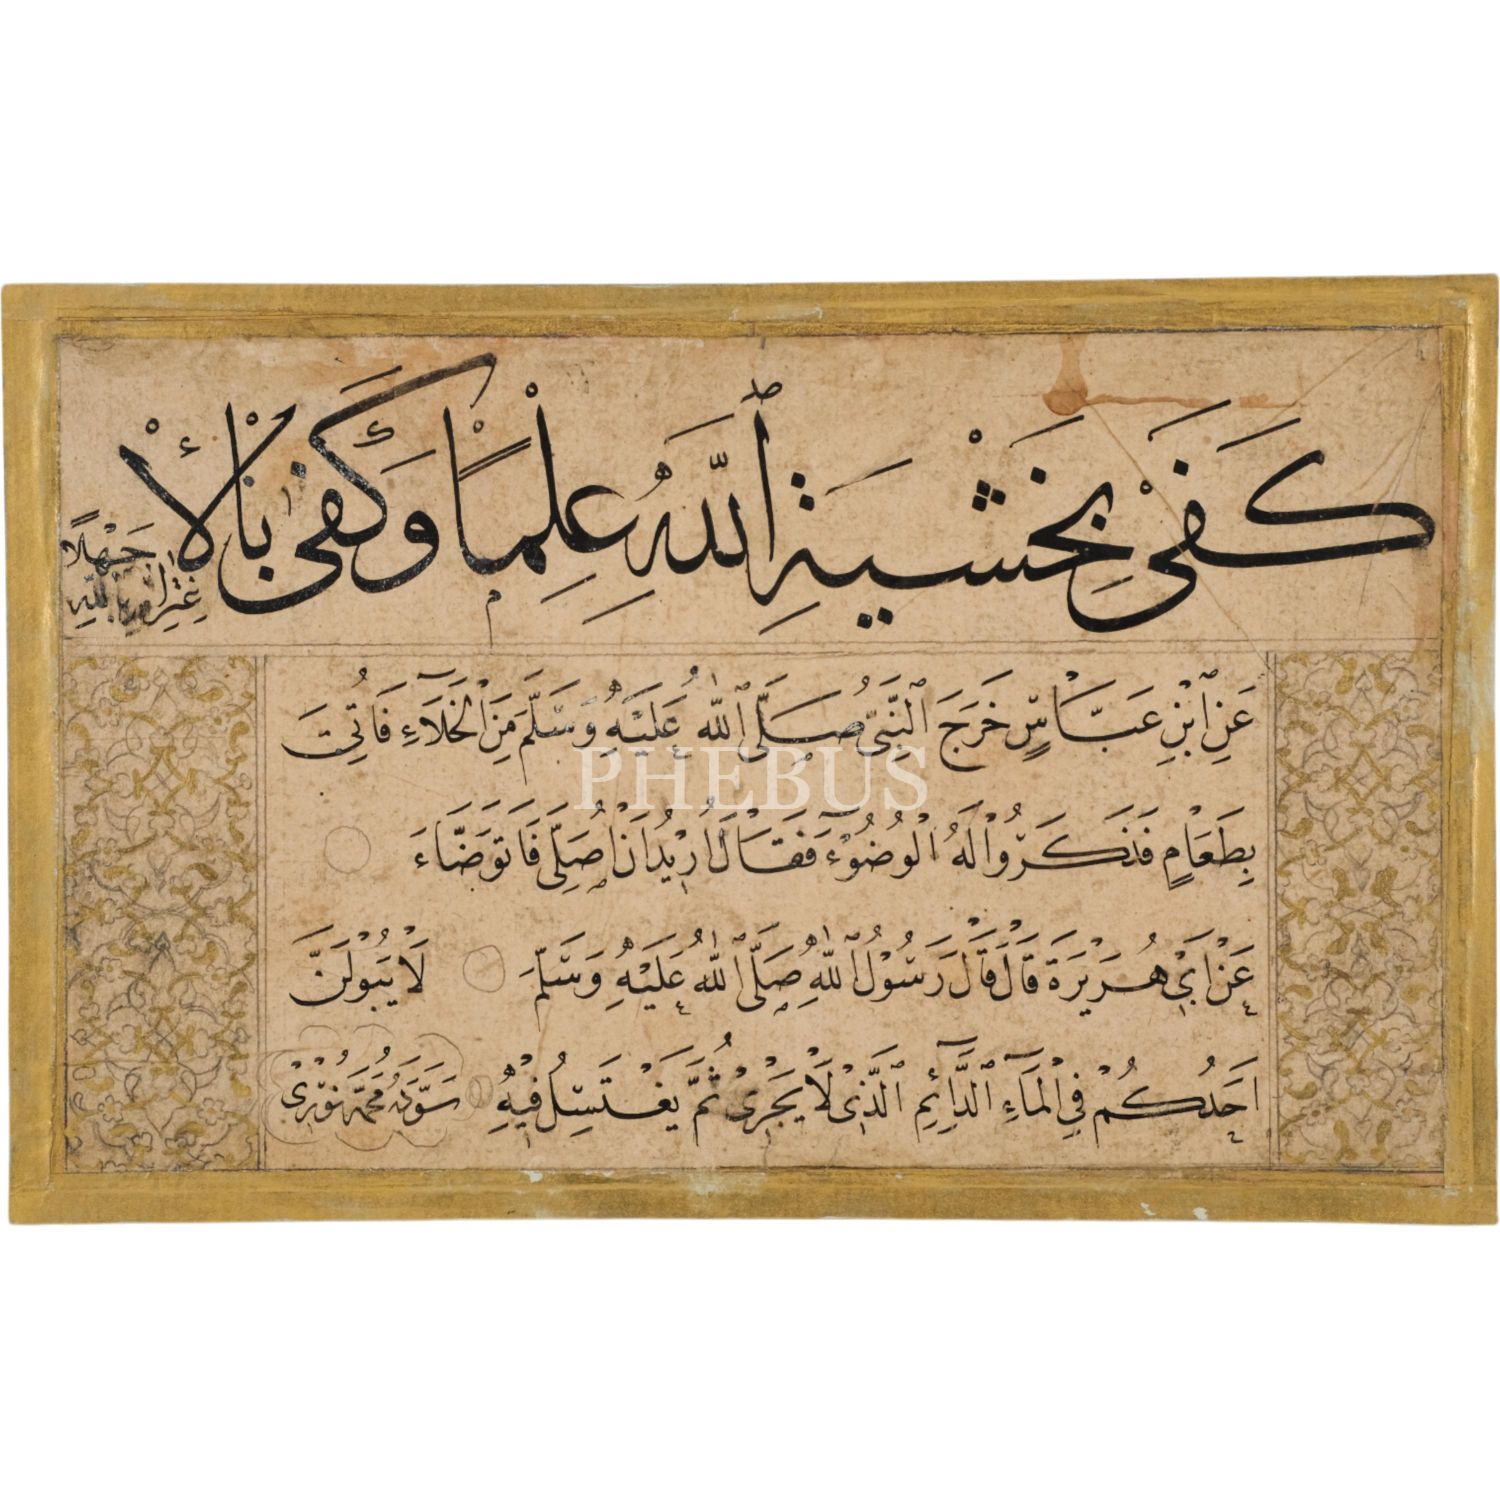 كَفَى بِخَشْيَةِ ٱللَّهِ عِلْمًا وَكَفَى بِالْاِ
غْتِرَارِ بِاللّٰهِ جَهْلًا
عَنِ ٱبْنِ عَبَّاسٍ خَرَجَ ٱلنَّبِىُّ صَلَّى ٱللّٰهُ عَلَيْهِ وَسَلَّمَ مِنَ ٱلْخَلَآءِ فَاُتِىَ
PHEBUS
بِطَعَامٍ فَذَكَرُوْا لَهُ ٱلْوُضُوْٓءَ فَقَالَ اُرِيْدُ اَنْ اُصَلِّىَ فَاَتَوَضَّاءَ
عَنْ اَبِىْ هُرَيْرَةَ قَالَ قَالَ رَسُوْلُ ٱللّٰهِ صَلَّى ٱللّٰهُ عَلَيْهِ وَسَلَّمَ لَا يَبُوْلَنَّ
اَحَدُكُمْ فِى ٱلْمَآءِ ٱلدَّآئِمِ ٱلَّذِىْ لَا يَجْرِىْ ثُمَّ يَغْتَسِلُ فِيْهِ سَوَّدَهُ مُحَمَّد نُوْرِىْ